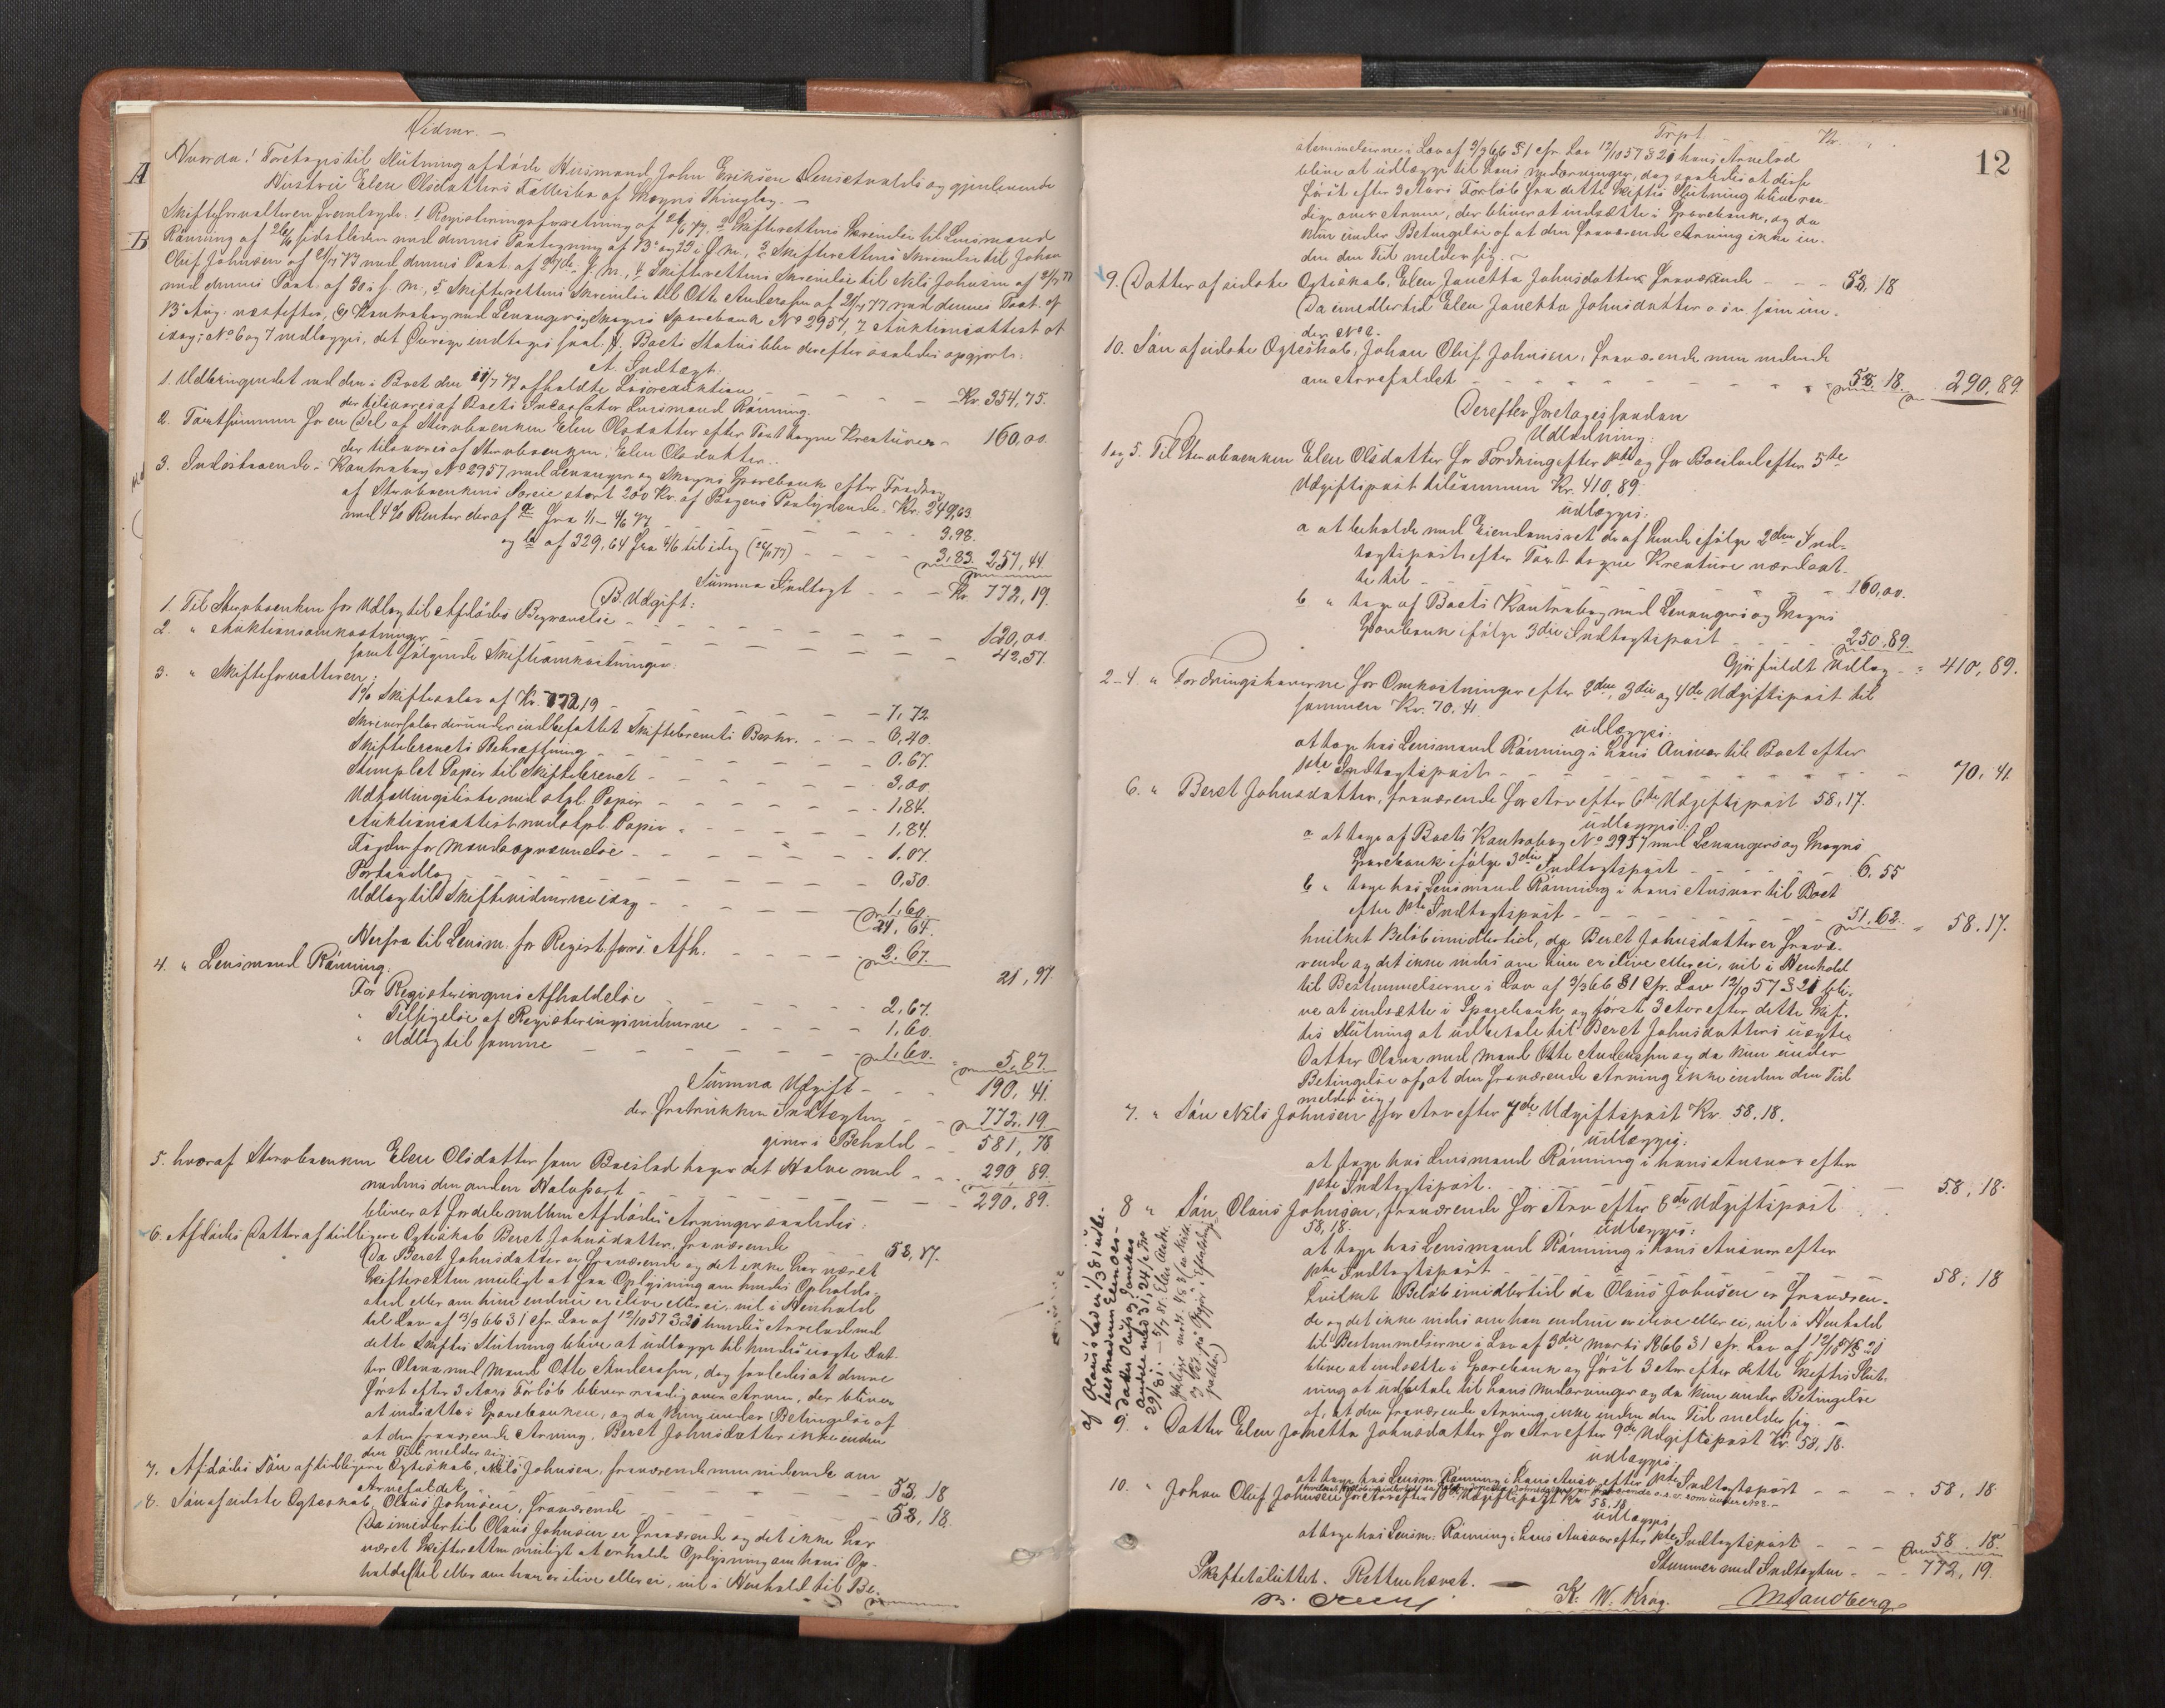 Vidnr. —
A
Hvorda! Foretoges til Slutning afdøde Huusmand John Eriksen og gjenlevende
Hustru Elen Olsdatters Fællesbo af Skogns Thinglag. —
Skifteforvalteren fremlagde: 1. Registreringsforretning af 2. Skifterettens Skrivelse til Lensmand
B
Rønning af sidstleden med dennes Paategning af 3. Skifterettens Skrivelse til Johan
Oluf Johnsen af med dennes Paat. af 4. Skifterettens Skrivelse til Nils Johnsen af
med dennes Paat. af 30 i f. M., 5 Skifterettens Skrivelse til Otte Andersen af med dennes Paat. af
13 Aug. næstefter, 6 Kontrabog med Levanger og Skogns Sparebank No 2957, 7 Auktionsattest af
idag; No 6 og 7 vedlægges, det Øvrige indtages saal. Boets Status blev derefter saaledes opgjort:
A. Indtægt.
1. Udbringendet ved den i Boet den 11/7 77 afholdte Løsøreauktion - - - Kr. 354,75.
der tilsvares af Boets Incassator Lensmand Rønning.
2. Taxtsummen for en Del af Stervboenken Elen Olsdatter efter Taxt tagne Kreaturer - 160,00.
der tilsvares af Stervboenken, Elen Olsdatter.
3. Indestaaende i Kontrabog No 2957 med Levanger og Skogns Sparebank efter Fradrag
af Stervboenkens Særeie stort 200 Kr. af Bogens Paalydende. Kr. 249,63.
med 4% Renter deraf a fra 1/1 - 4/6 77 - - - 3,98.
og b af 329,64 fra 4/6 til idag - - - 3,83. 257,44.
Summa Indtægt - - - Kr. 772,19.
B. Udgift:
1. Til Stervboenken for Udlæg til Afdødes Begravelse - - - 120,00.
2. " Auktionsomkostninger - - - 42,57.
samt følgende Skifteomkostninger:
3. " Skifteforvalteren:
1% Skiftesalær af Kr. 772,19 - - - 7,72
Skriversalær derunder indbefattet Skiftebrevets Beskr. - - - 6,40.
Skiftebrevets Bekræftning - - - 0.67.
Stemplet Papir til Skiftebrevet - - - 3,00.
Udtællingsliste med stpl. Papir - - - 1,84.
Auktionsattest med stpl. Papir - - - 1,84.
Tægter for Mandsopnævnelse - - - 1,07.
Portoudlæg - - - 0,50.
Udlæg til Skiftevidnerne idag - - - 1,60.
24,64.
Herfra til Lensm. for Registr. forr. Afh. - - - 2,67.
21,97.
4. " Lensmand Rønning:
For Registeringens Afholdelse - - - 2,67.
" Tilsigelse af Registeringsvidnerne - - - 1,60.
" Udlæg til samme - - - 1,60. 5,87.
Summa Udgift - - 190,41.
der fratrukken Indtægten - - 772,19.
giver i Behold - 581,78
5. hvoraf Stervboenken Elen Olsdatter som Boeslod tager det Halve med - - 290,89.
medens den anden Halvpart - - - 290,89.
bliver at fordele mellem Afdødes Arvinger saaledes:
6. Afdødes Datter af tidligere Ægteskab Beret Johnsdatter, fraværende - - 58,17.
Da Beret Johnsdatter er fraværende og det ikke har været
Skifteretten muligt at faa Oplysning om hendes Opholds-
sted eller om hun endnu er ilive eller ei, vil i Henhold
til Lov af 3/3 66 § 1 cfr. Lov af 12/10 57 § 20 hendes Arvelod ved
dette Skiftes Slutning blive at udlægge til hendes uægte Dat-
ter Olava med Mand Otte Andersen, dog saaledes at denne
først efter 3 Aars Forløb bliver raadig over Arven, der bliver
at indsætte i Sparebanken, og da kun under Betingelse af
at den fraværende Arving, Beret Johnsdatter ikke inden
den Tid melder sig.
7. Afdødes Søn af tidligere Ægteskab, Nils Johnsen, fraværende men vidende om
Arvefaldet - - - 58,18
8. Søn af sidste Ægteskab, Olaus Johnsen, fraværende - - - 58,18.
Da imidlertid Olaus Johnsen er fraværende og det ikke har
været Skifteretten muligt at erholde Oplysning om hans Op-
holdssted eller om han er ilive eller ei, vil i Henhold til Be-
12
Trpt. Kr. "
stemmelserne i Lov af 3/3 66 § 1 cfr. Lov 12/10 57 § 20 hans Arvelod
blive at udlægge til hans Medarvinger, dog saaledes at disse
først efter 3 Aars Forløb fra dette Skiftes Slutning blive raa-
dige over Arven, der bliver at indsætte i Sparebank, og da
kun under Betingelse af at den fraværende Arving ikke in-
den den Tid melder sig. —
9. Datter af sidste Ægteskab, Elen Janetta Johnsdatter, fraværende - - - 58,18
Da imedlertid Elen Janetta Johnsdatter o.s.v. som un-
der No 8.
10. Søn af sidste Ægteskab, Johan Oluf Johnsen, fraværende men vidende
om Arvefaldet - - - 58,18. 290,89
Derefter foretages saadan
Udlodning:
1 og 5. Til Stervboenken Elen Olsdatter for Fordring efter 1ste og for Boeslod efter 5te
Udgiftspost tilsammen Kr. 410,89.
udlægges:
a at beholde med Eiendomsret de af hende ifølge 2den Ind-
tægtspost efter Taxt tagne Kreature værdsat-
te til - - - 160,00.
b " tage af Boets Kontrabog med Levangers og Skogns
Sparebank ifølge 3die Indtægtspost - - - 250,89.
Gjør fuldt Udlæg - - 410,89.
2-4. " Fordringshaverne for Omkostninger efter 2den, 3die og 4de Udgiftspost til
sammen Kr. 70,41
udlægges:
at tage hos Lensmand Rønning i hans Ansvar til Boet efter
1ste Indtægtspost - - - 70,41
6. " Beret Johnsdatter, fraværende for Arv efter 6te Udgiftspost 58,17.
udlægges:
a at tage af Boets Kontrabog No 2957 med Levangers og Skogns
Sparebank ifølge 3die Indtægtspost - - - 6,55
b " tage hos Lensmand Rønning i hans Ansvar til Boet
efter 1ste Indtægtspost - - - 51,62. " 58,17.
hvilket Beløb imidlertid, da Beret Johnsdatter er fravæ-
rende og det ikke vides om hun er ilive eller ei, vil i Henhold
til Bestemmelserne i Lov af 3/3 66 § 1 cfr. Lov 12/10 57 § 20 bli-
ve at indsætte i Sparebank og først 3 Aar efter dette Skif-
tes Slutning at udbetale til Beret Johnsdatters uægte
Datter Olava med Mand Otte Andersen og da kun under
Betingelse af, at den fraværende Arving ikke inden den Tid
melder sig.
7. " Søn Nils Johnsen for Arv efter 7de Udgiftspost Kr. 58,18.
udlægges:
at tage hos Lensmand Rønning i hans Ansvar efter
1ste Indtægtspost. - - - 58,18.
8 " Søn Olaus Johnsen, fraværende for Arv efter 8de Udgiftspost
58,18.
udlægges:
at tage hos Lensmand Rønning i hans Ansvar efter
1ste Indtægtspost - - - 58,18
hvilket Beløb imidlertid da Olaus Johnsen er fraværen-
de og det ikke vides om han endnu er ilive eller ei, vil i Henhold
til Bestemmelserne i Lov af 3die Marts 1866 § 1 cfr. Lov af 12/10 57 § 20
blive at indsætte i Sparebank og først 3 Aar efter dette Skiftes Slut-
ning at udbetale til hans Medarvinger og da kun under Betingelse
af, at den fraværende Arving ikke inden den Tid melder sig. —
af Olaus's Lod er
9. " Datter Elen Janetta Johnsdatter for Arv efter 9de Udgiftspost Kr. 58,18.
udlægges:
at tage hos Lensm. Rønning i hans Ansv. efter 1ste Indtægtspost - - - 58,18
10. " Johan Oluf Johnsen for Arv efter 10de Udgiftspost Kr. 58,18
udlægges
at tage hos Lensm. Rønning i hans Ansvar efter 1ste Indtægtspost - - - 58,18.
Stemmer med Indtægten - - - 772,19.
Skiftet sluttet. Retten hævet. —
K. W. Krog. M Sandberg